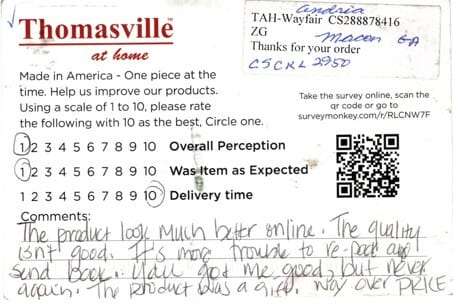 Thomasville™
at home
Made in America - One piece at the
time. Help us improve our products.
Using a scale of 1 to 10, please rate
the following with 10 as the best, Circle one.
andria
TAH-Wayfair CS288878416
ZG
Macon GA
Thanks for your order
CSCKL2950
Take the survey online, scan the
qr code or go to
surveymonkey.com/r/RLCNW7F
1 2 3 4 5 6 7 8 9 10 Overall Perception
1 2 3 4 5 6 7 8 9 10 Was Item as Expected
1 2 3 4 5 6 7 8 9 10 Delivery time
Comments:
The product look much better online. The quality
isn't good. It's more trouble to re-pack and
send back. You got me good, but never
again. The product was a gift. Way over PRICE.